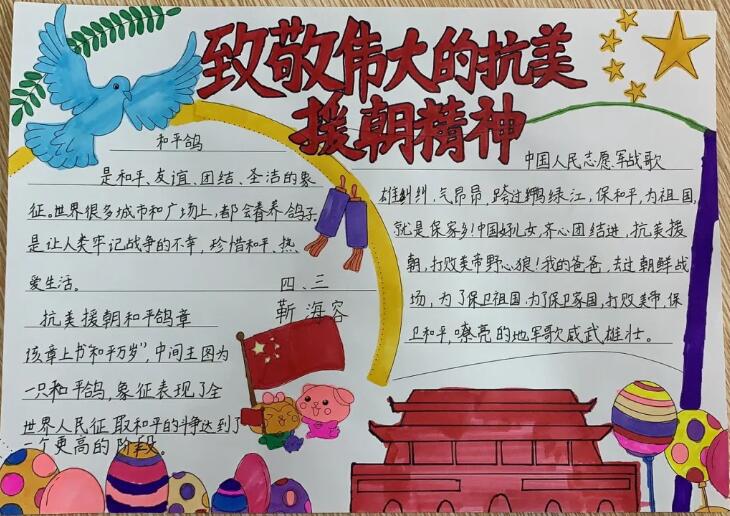 致敬伟大的抗美
援朝精神
和平鸽
是和平、友谊、团结、圣洁的象
征。世界很多城市和广场上,都会眷养鸽子
是让人类牢记战争的不幸,珍惜和平、热
爱生活。
四、三
靳海容
抗美援朝和平鸽章
该章上书“和平万岁”,中间主图为
一只和平鸽,象征表现了全
世界人民征取和平的争达到了
一个更高的阶段。
中国人民志愿军战歌
雄纠纠、气昂昂,跨过鸭绿江,保和平,为祖国,
就是保家乡!中国好儿女,齐心团结进,抗美援
朝,打败美帝野心狼!我的爸爸,去过朝鲜战
场,为了保卫祖国,为了保卫家国,打败美帝,保
卫和平,嘹亮的地军歌威武雄壮。